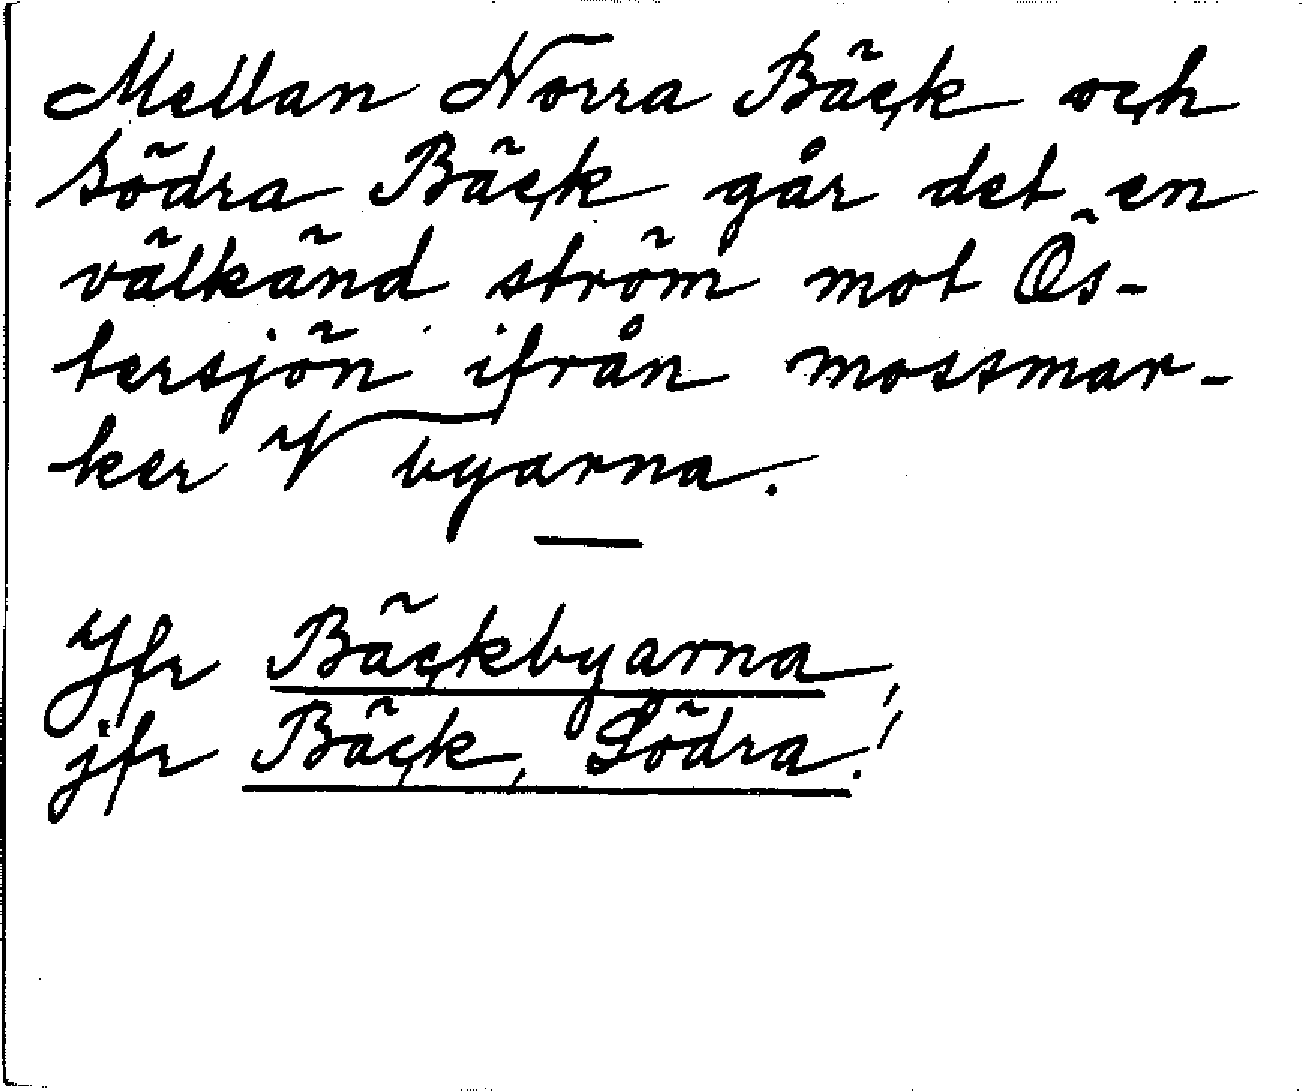 Mellan Norra Bäck och
Södra Bäck går det en
välkänd ström mot Ös-
tersjön ifrån mossmar-
ker V byarna.
Jfr Bäckbyarna,
jfr Bäck, Södra!